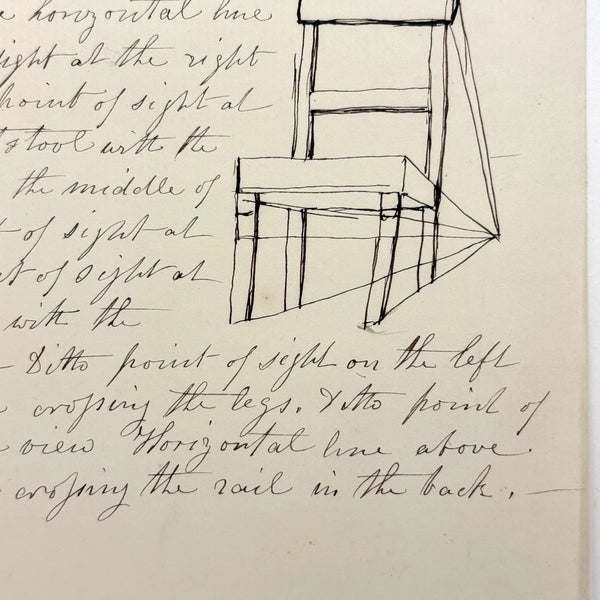 horizontal line
sight at the right
point of sight at
stool with the
the middle of
of sight at
of sight at
with the
– Ditto point of sight on the left
croſsing the legs. Ditto point of
view Horizontal line above.
croſsing the rail in the back. —